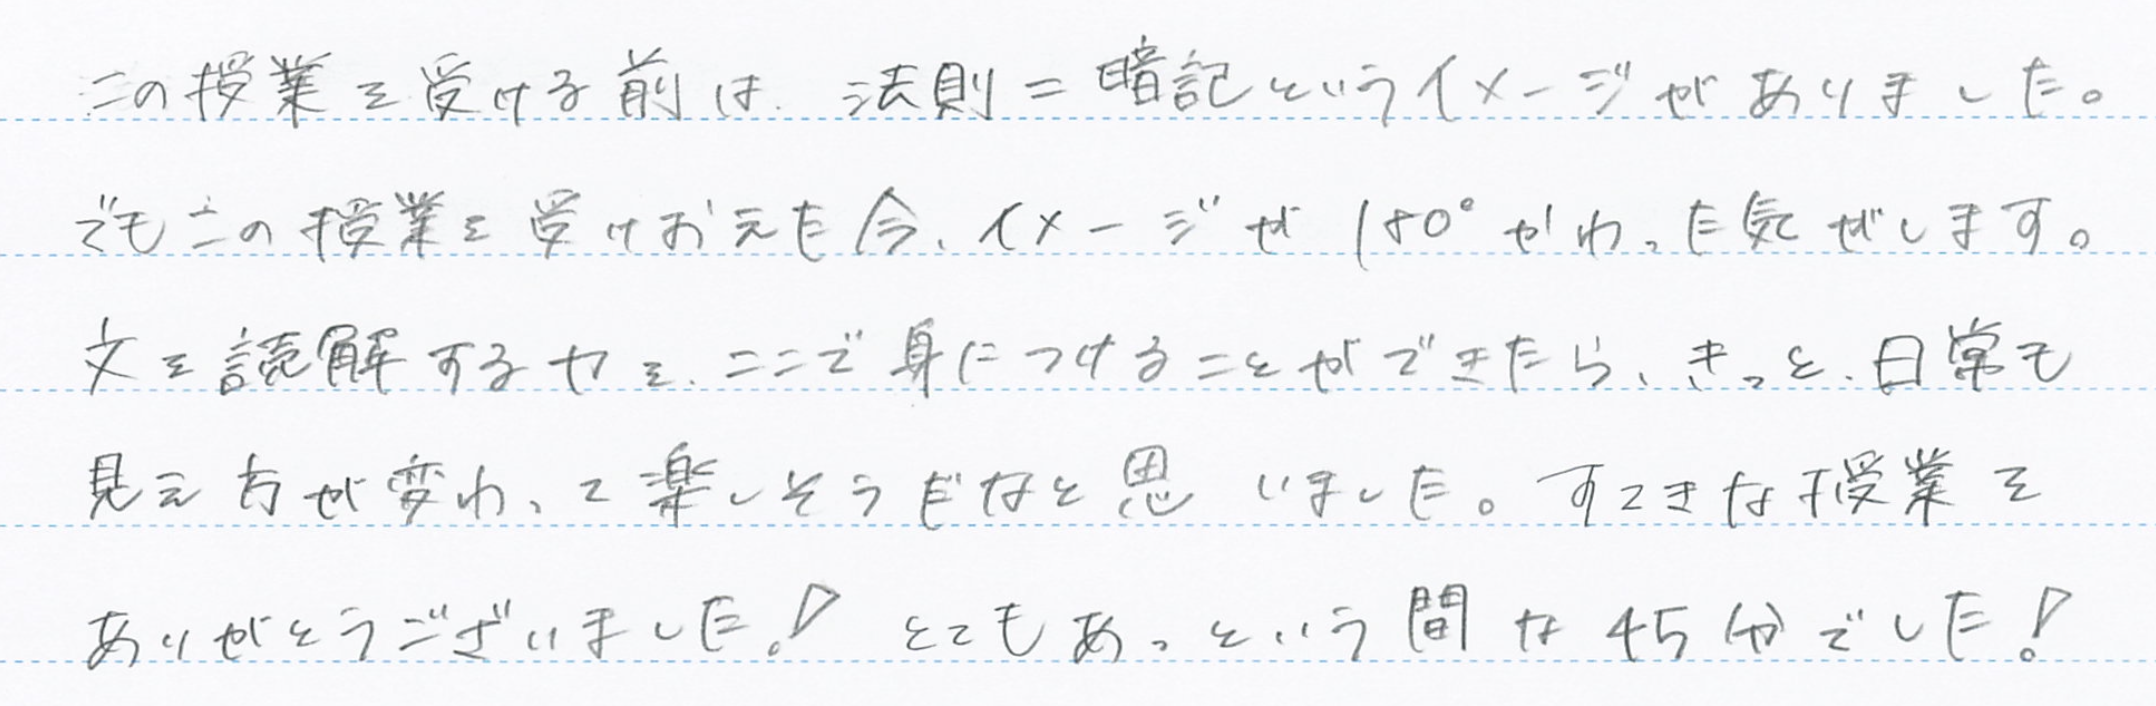 この授業を受ける前は、法則=暗記というイメージがありました。
でもこの授業を受けおえた今、イメージが180°かわった気がします。
文を読解する力を、ここで身につけることができたら、きっと、日常も
見え方が変わって楽しそうだなと思いました。すてきな授業を
ありがとうございました!とてもあっという間な45分でした!